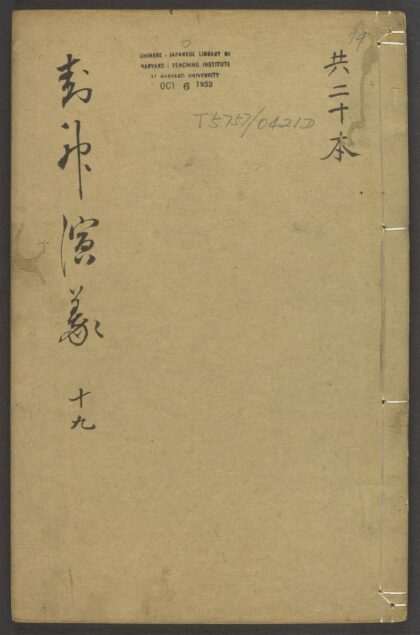 共二十本
封神演義 十九
CHINESE - JAPANESE LIBRARY OF
HARVARD - YENCHING INSTITUTE
AT HARVARD UNIVERSITY
OCT 6 1953
T5757/0421D
19